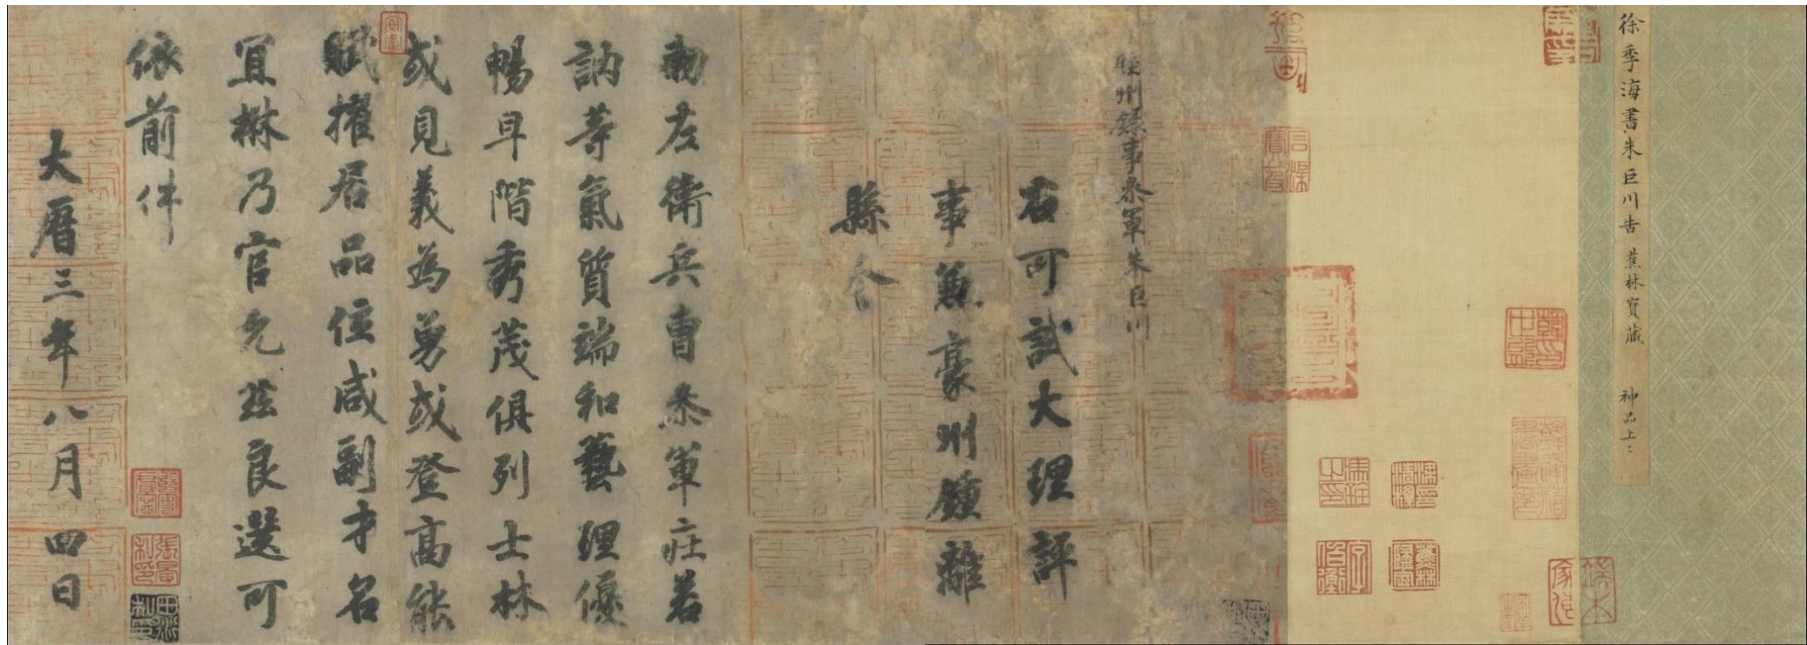 徐季海書朱巨川告 蕉林寶藏 神品上上
睦州錄事參軍朱巨川
右可試大理評
事兼豪州鍾離
縣令
勑左衛兵曹參軍莊若
訥等氣質端和藝理優
暢早階秀茂俱列士林
或見義為勇或登高能
賦擢居品位咸副才名
宜楙乃官允茲良選可
依前件
大曆三年八月四日